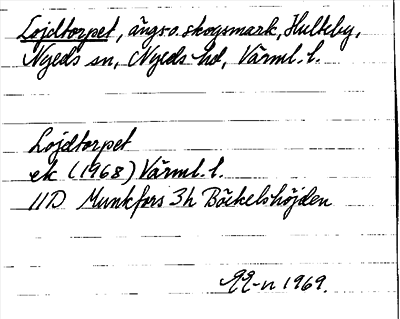 Lojdtorpet, ängs o. skogsmark, Hulteby,
Nyeds sn, Nyeds hd, Värml. l.
Lojdtorpet
ek (1968) Värml. l.
11D Munkfors 3h Bäckelshöjden
1969.